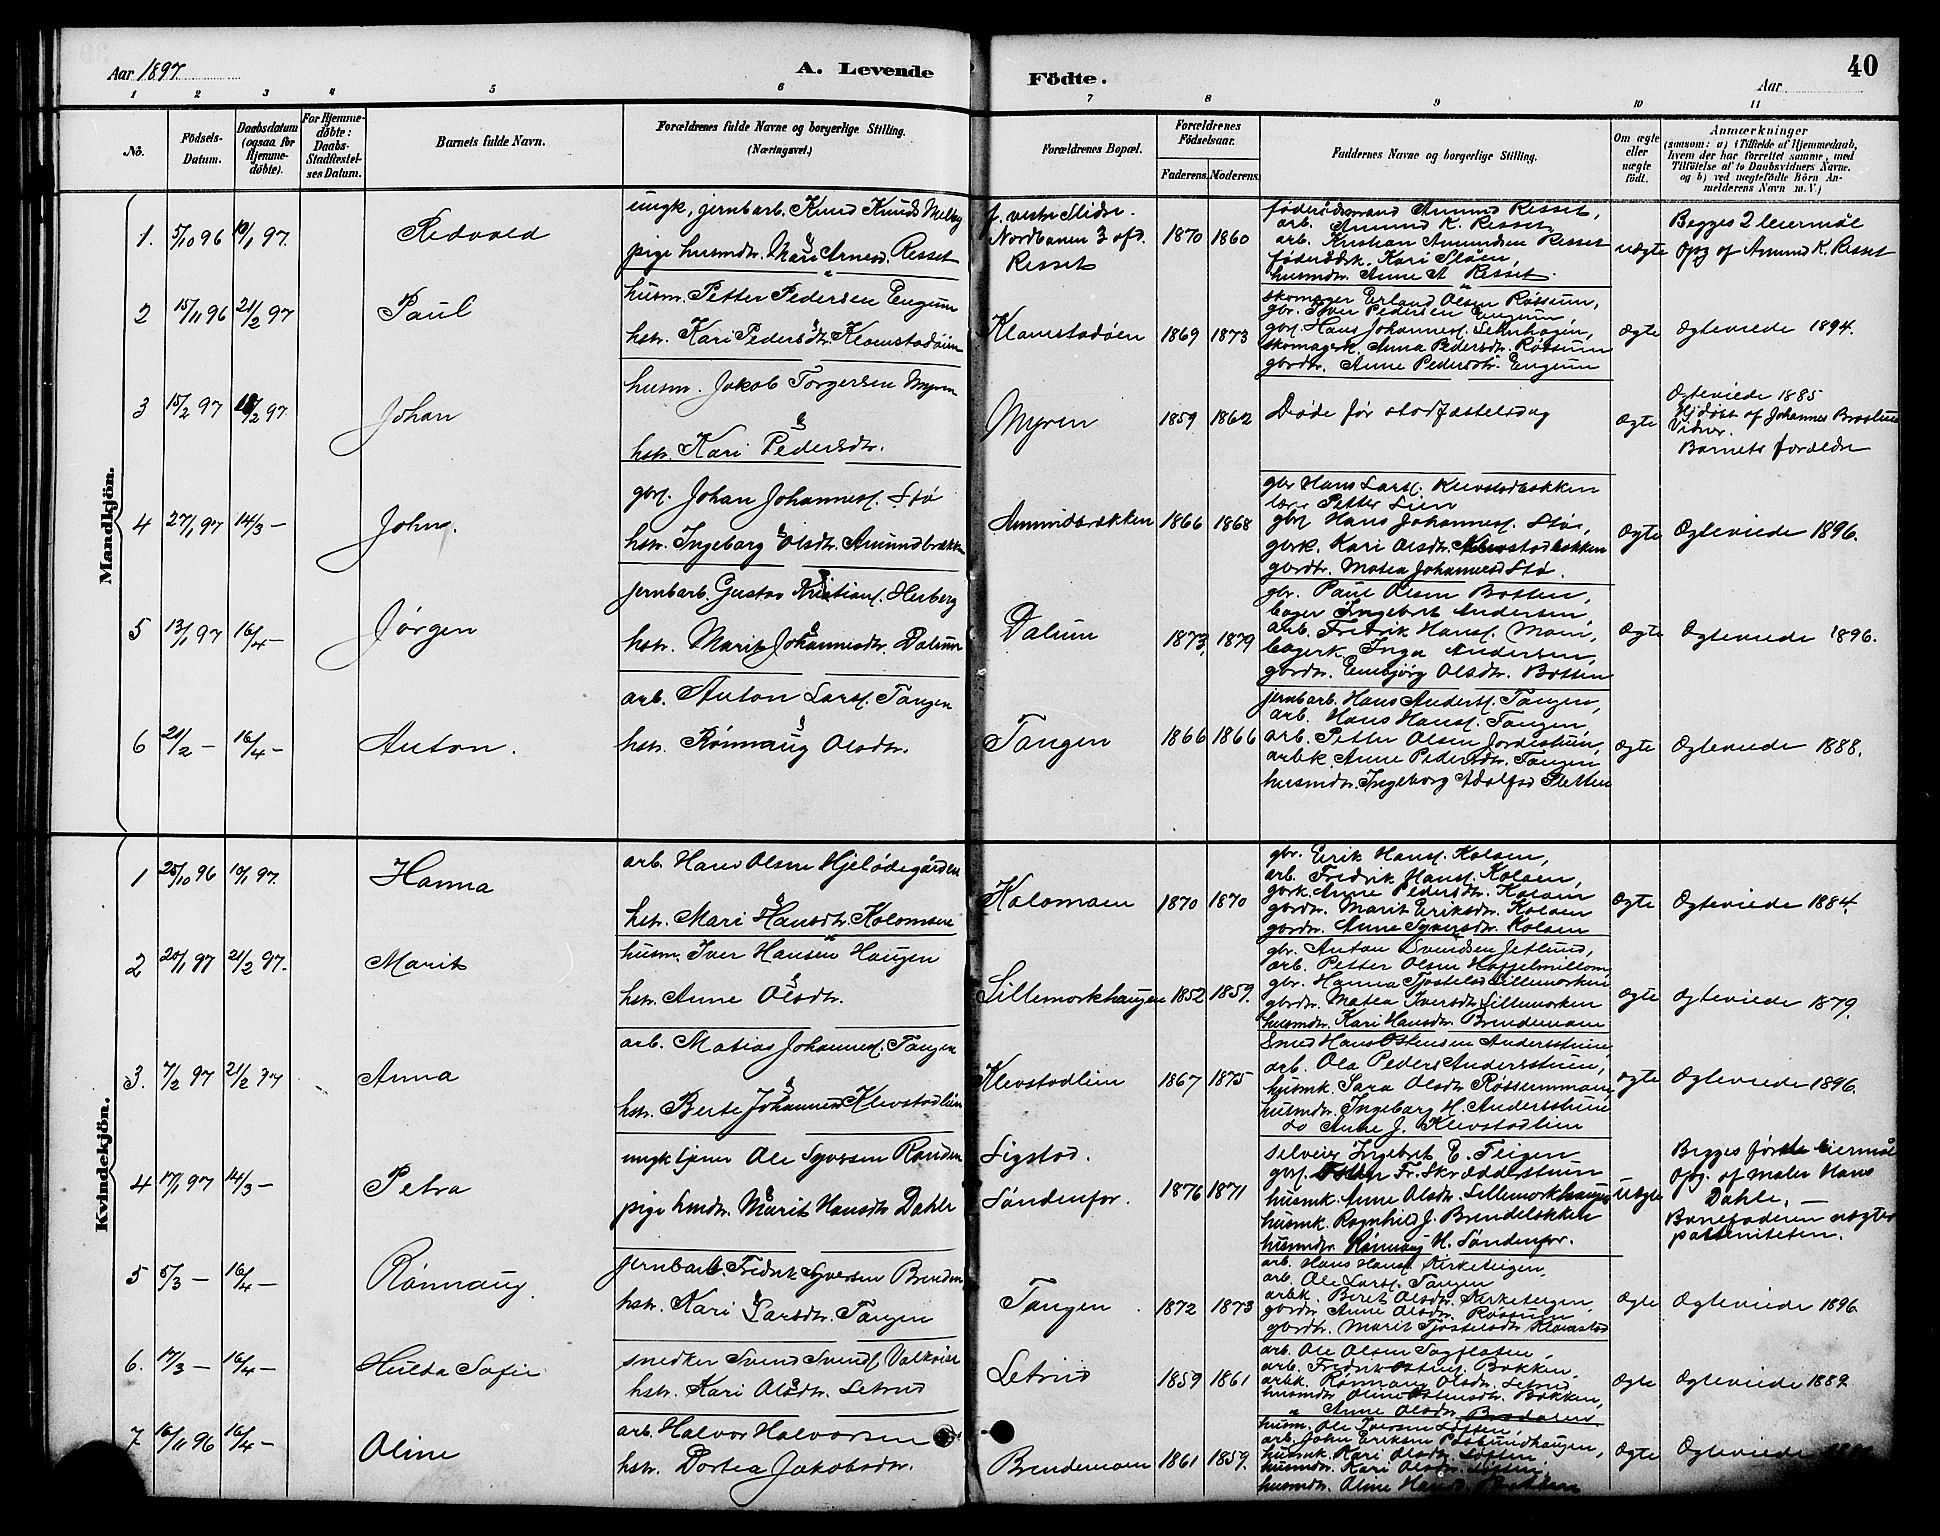 Aar 1897
A. Levende
Födte.
Aar
40
1 2 3 4 5 6 7 8 9 10 11
No.
Födsels-Datum.
Daabsdatum (ogsaa for Hjemme-døbte).
For Hjemme-døbte: Daabs-Stadfæstel-ses Datum.
Barnets fulde Navn.
Forældrenes fulde Navne og borgerlige Stilling. (Næringsvei.)
Forældrenes Bopæl.
Forældrenes Födselsaar.
Faderens. Moderens.
Faddernes Navne og borgerlige Stilling.
Om ægte eller uægte født.
Anmærkninger
(saasom: a) i Tilfælde af Hjemmedaab, hvem der har forrettet samme, med Tilføielse af to Daabsvidners Navne, og b) ved uægtefødte Börn An-melderens Navn m. V.)
Mandkjön.
1. 5/10 96 10/1 97. Redvald
ungk, jernbarb. Knud Knuds Melby
&
pige husmdtr. Mari Arnesd. Resset
f. vestre Slidre.
Nordbanen 3 afd.
Resset
1870 1860
føderådsmand Amund Resset,
arb. Amund K. Resset
arb. Kristian Amundsen Resset
føderådsk. Kari Sløen,
husmdtr. Anne A Resset.
uægte
Begges 2 leiermål
Opg af Amund K. Resset
2 15/11 96 21/2 97 Paul
husm. Petter Pedersen Engum
&
hstr. Kari Pedersdtr. Klomstadøien
Klomstadøen 1869 1873
skomager Erland Olsen Røssum,
gbr. Iver Pedersen Engum
gbrs. Hans Johannes.
skomagerk. Anna Pedersdtr. Røssum
gbrdtr. Anne Pedersdtr. Engum
ægte Ægteviede 1894.
3 15/2 97 18/2 97 Johan
husm. Jakob Torgersen Myren
&
hstr. Kari Pedersdtr.
Myren 1859 1862
Døde før stadfæstelsdag
ægte
Ægteviede 1885
Hjdøbt af Johannes
Vidner.
Barnets foreldre
4 27/1 97 14/3 – Johs.
gbrs. Johan Johannes. Stø
&
hstr. Ingeborg Olsdtr. Amundbrækken
Amundbrækken 1866 1868
gbr Hans Lars. Klevstadbakken
lærer Petter Lien
gbrs Hans Johannes. Stø,
gbrk. Kari Olsdtr. Klevstadbakken
gbrdtr. Matea Johannesd Stø.
ægte Ægteviede 1896.
5 13/1 97 16/4 – Jørgen
jernbarb. Gustav Kristians. Herberg
&
hstr. Marit Johannesdtr. Dalum
Dalum 1873, 1879
gbr. Paul Olsen Botten,
bager Ingebret Andersen,
arb. Fredrik Hans. Moen,
bagerk. Inga Andersen,
gbrdtr. Embjørg Olsdtr. Botten
ægte Ægteviede 1896.
6 21/2 – 16/4 – Anton.
arb. Anton Lars. Tangen
&
hstr. Rønnaug Olsdtr.
Tangen 1866 1866
jernbarb. Hans Anders. Tangen,
arb. Hans Hans. Tangen,
arb. Petter Olsen Jordestuen,
arbk. Anne Pedersdtr. Tangen
husmdtr. Ingeborg Adolfsd Sletten
ægte Ægteviede 1888.
Kvindekjön.
1 25/10 96 10/1 97. Hanna
arb. Hans Olsen Hjelødegården
&
hstr. Mari Hansdtr. Kolomoen
Kolomoen 1870 1870
gbr. Erik Hans. Kolsen,
arb. Fredrik Hans. Kolsen,
gbrk. Anne Pedersdtr. Kolsen
gbrdtr. Marit Eriksdtr. Kolsen
gbrdtr. Anne Syversdtr. Kolsen
ægte Ægteviede 1884.
2 20/1 97 21/2 97. Marit
husm. Iver Hansen Haugen
&
hstr. Anne Olsdtr.
Lillemorkhaugen 1852 1859.
gbr. Anton Svendsen Jetlund,
arb. Petter Olsen
gbr. Hanna Tjostelsd Lillemorken
gbrdtr. Matea Iversdtr. Lillemorken
husmdtr. Kari Hansdtr. Brendemoen
ægte Ægteviede 1879.
3. 7/2 97 21/2 97 Anna
arb. Matias Johannes. Tangen
&
hstr. Berte Johannesd Klevstadlien
Klevstadlien 1867 1875
Smed Hans Ostensen Andersstuen,
arb. Ola Peders Andersstuen,
husmk. Sara Olsdtr. Røssummoen,
husmdtr. Ingeborg H. Andersstuen
do Anne J. Klevstadlien
ægte Ægteviede 1896.
4 17/1 97 14/3 – Petra
ungk tjener Ole Syversen Randen
&
pige hmdtr. Marit Hansdtr Dahle
Sigstad.
Søndenfor.
1876 1871
selveier Ingebret E. Teigen
gbrs. Osten Fr. Skrædderstuen
husmk. Anne Olsdtr. Lillemorkhaugen
husmk. Ragnhild J. Brendeløkken
husmdtr Rønnaug H. Søndenfor.
uægte
Begges første leiermål
Opg. af maler Hans
Dahle, —
Barnefaderen nægter
paterniteten.
5 5/3 – 16/4 – Rønnaug.
jernbarb. Fredrik Syversen Brenden
&
hstr. Kari Larsdtr. Tangen
Tangen 1872 1873
arb. Hans Hans. Kirketeigen,
arb. Ole Lars. Tangen
arbk. Beret Olsdtr. Kirketeigen,
gbrdtr. Anne Olsdtr. Røssum
gbrdtr. Marit Tjostelsdtr. Klomstad
ægte Ægteviede 1896
6. 17/3 – 16/4 – Hulda Sofie
snedker Svend Svends Valkvier
&
hstr. Kari Olsdtr. Letrud
Letrud 1859 1861
arb. Ole Olsen Sagflaten,
arb. Fredrik Ostens. Bakken,
arbk. Rønnaug Olsdtr. Letrud
husmdtr. Oline Ostensdtr. Bakken,
" Anne Olsdtr.
ægte Ægteviede 1889
7. 16/11 96 16/4 – Oline
arb. Halvor Halvorsen
hstr. Dortea Jakobsdtr.
Brendemoen 1861 1859.
husm. Ole Iversen
arb. John Eriksen
husmk. Kari Olsdtr.
husmdtr. Kari Olsdtr.
husmdtr. Oline Hansd. Bakken
ægte Ægteviede